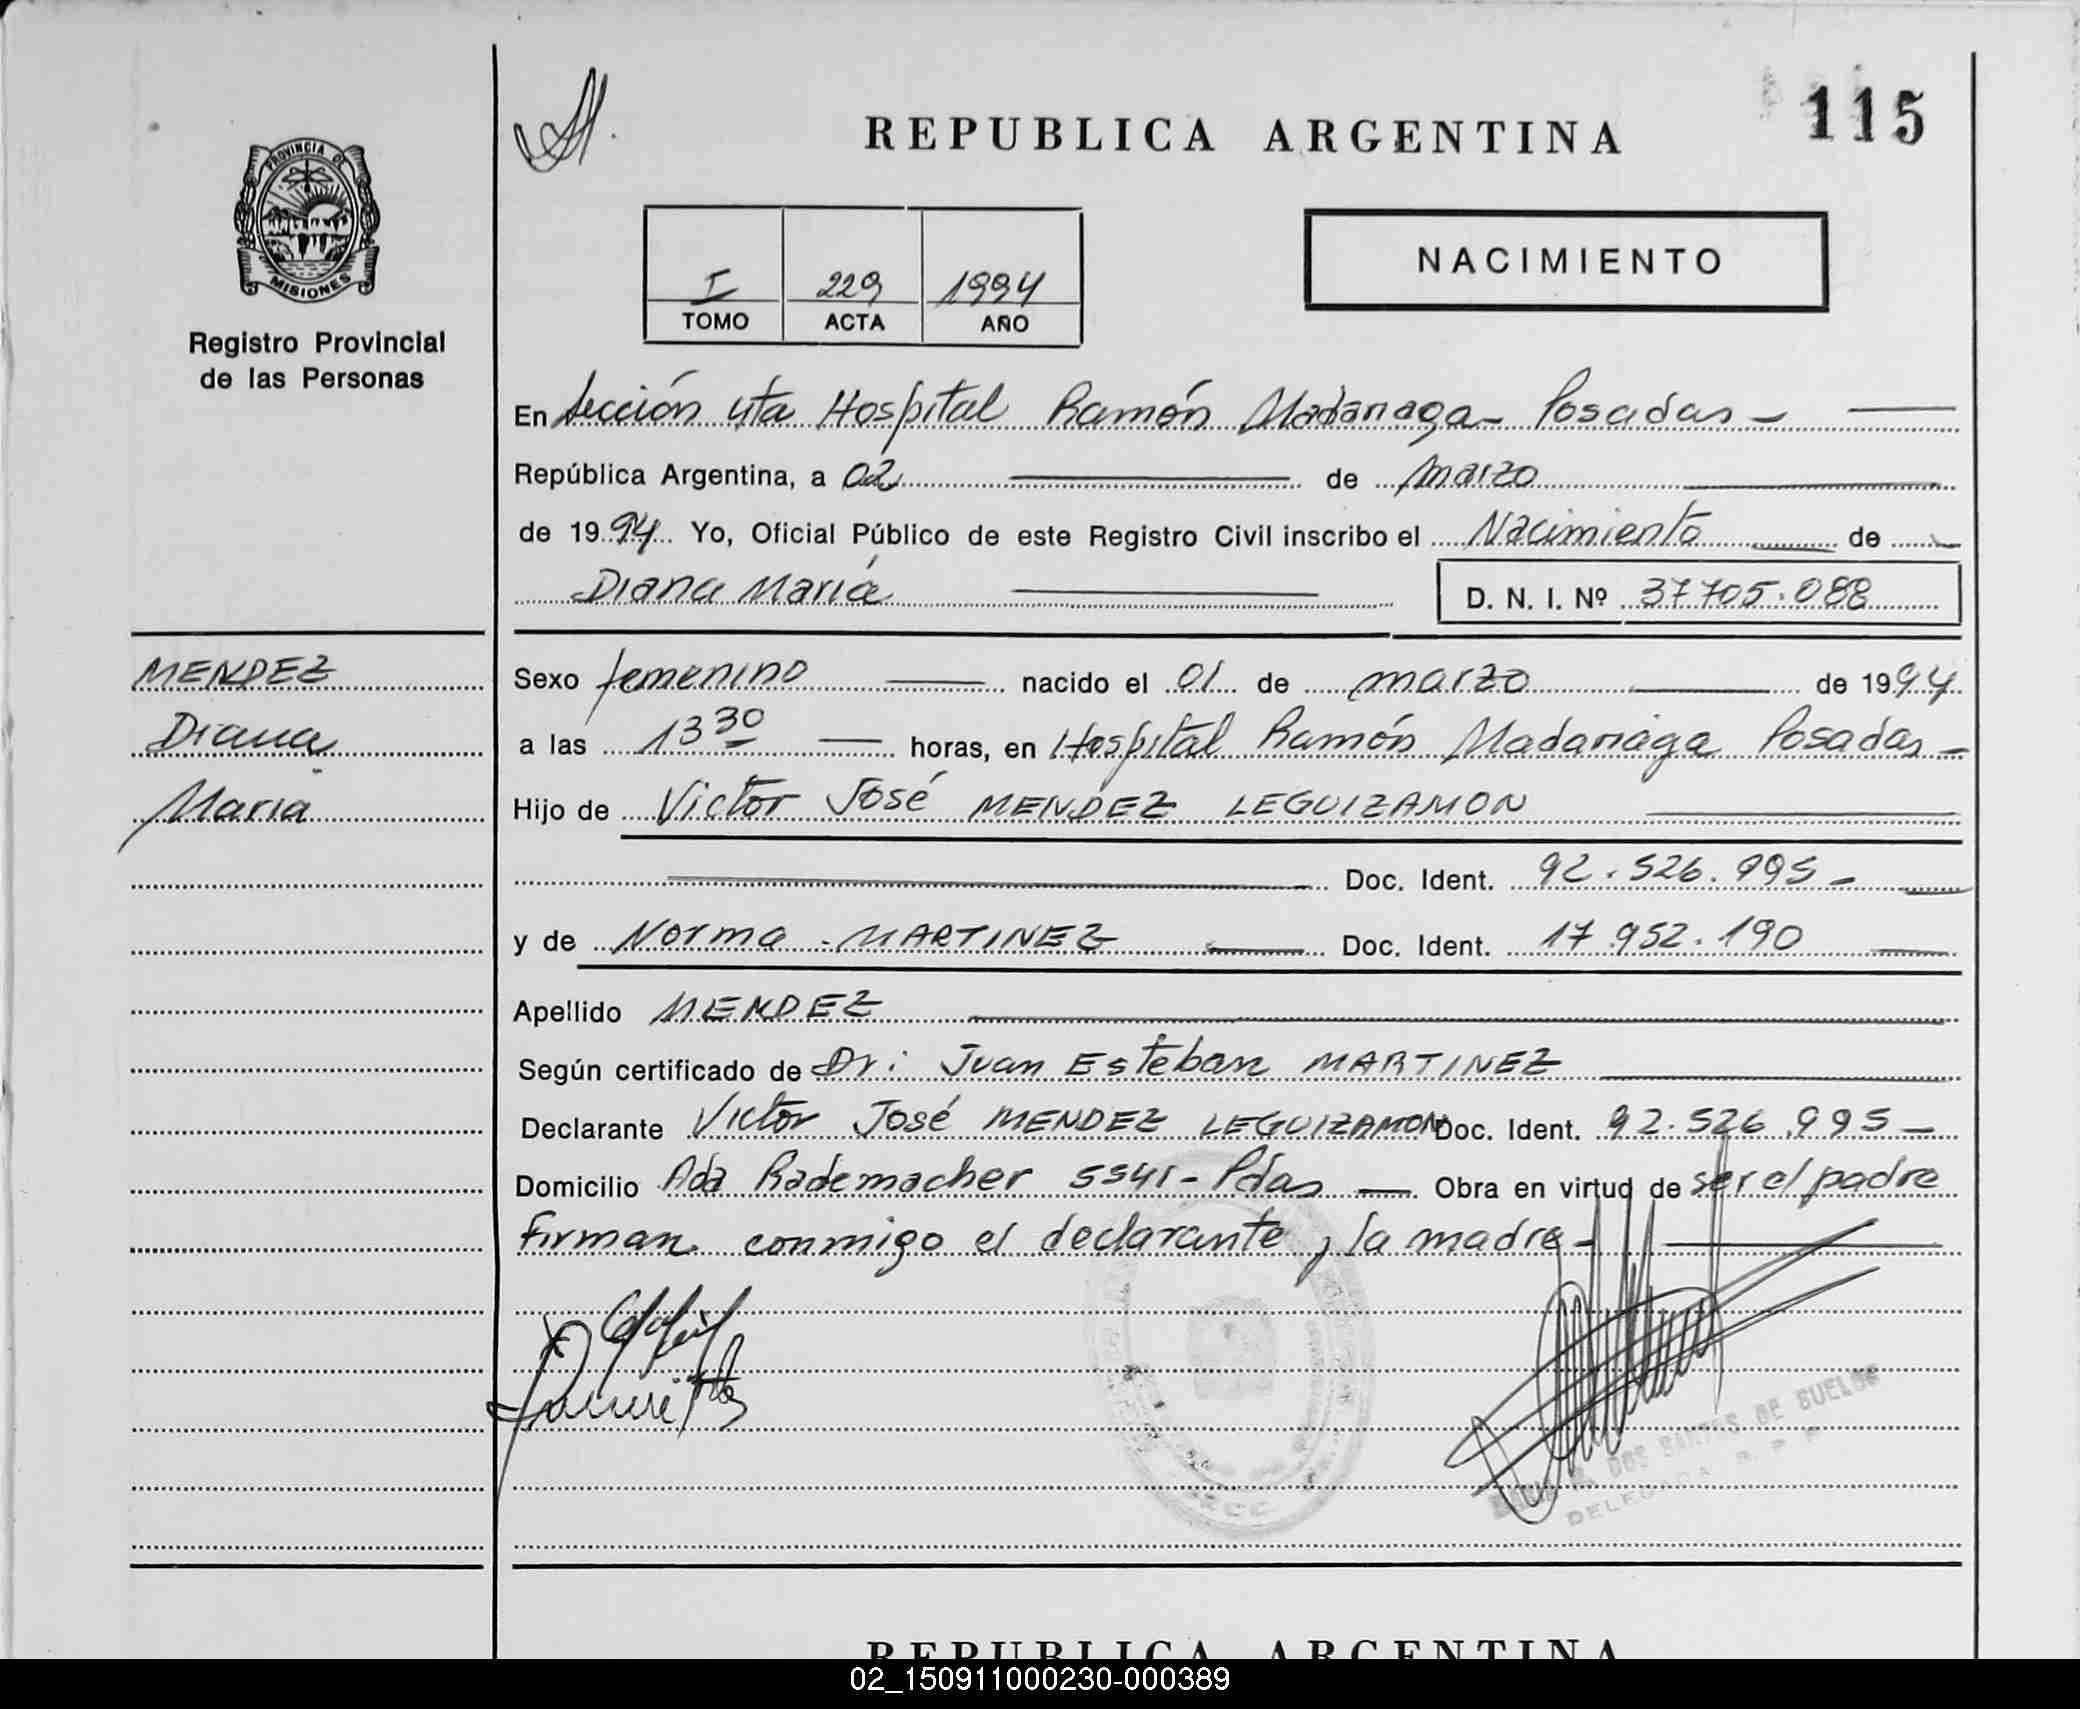 115
REPUBLICA ARGENTINA
PROVINCIA DE
MISIONES
Registro Provincial
de las Personas
NACIMIENTO
I 229 1994
TOMO ACTA AÑO
En Sección 4ta Hospital Ramón Madariaga - Posadas -
República Argentina, a 02 de marzo
de 1994 Yo, Oficial Público de este Registro Civil inscribo el Nacimiento de
Diana María D. N. I. Nº 37705.088
MENDEZ
Diana
María
Sexo femenino nacido el 01 de marzo de 1994
a las 13 30 horas, en Hospital Ramón Madariaga Posadas -
Hijo de Victor José MENDEZ LEGUIZAMON
Doc. Ident. 92.526.995 -
y de Norma MARTINEZ Doc. Ident. 17.952.190
Apellido MENDEZ
Según certificado de Dr: Juan Esteban MARTINEZ
Declarante Victor José MENDEZ LEGUIZAMON Doc. Ident. 92.526.995 -
Domicilio Ada Rademacher 5541 - Pdas Obra en virtud de ser el padre
Firman conmigo el declarante y la madre -
DE SUELOS
DELEGADA R. P. P.
REPUBLICA ARGENTINA
02_150911000230-000389